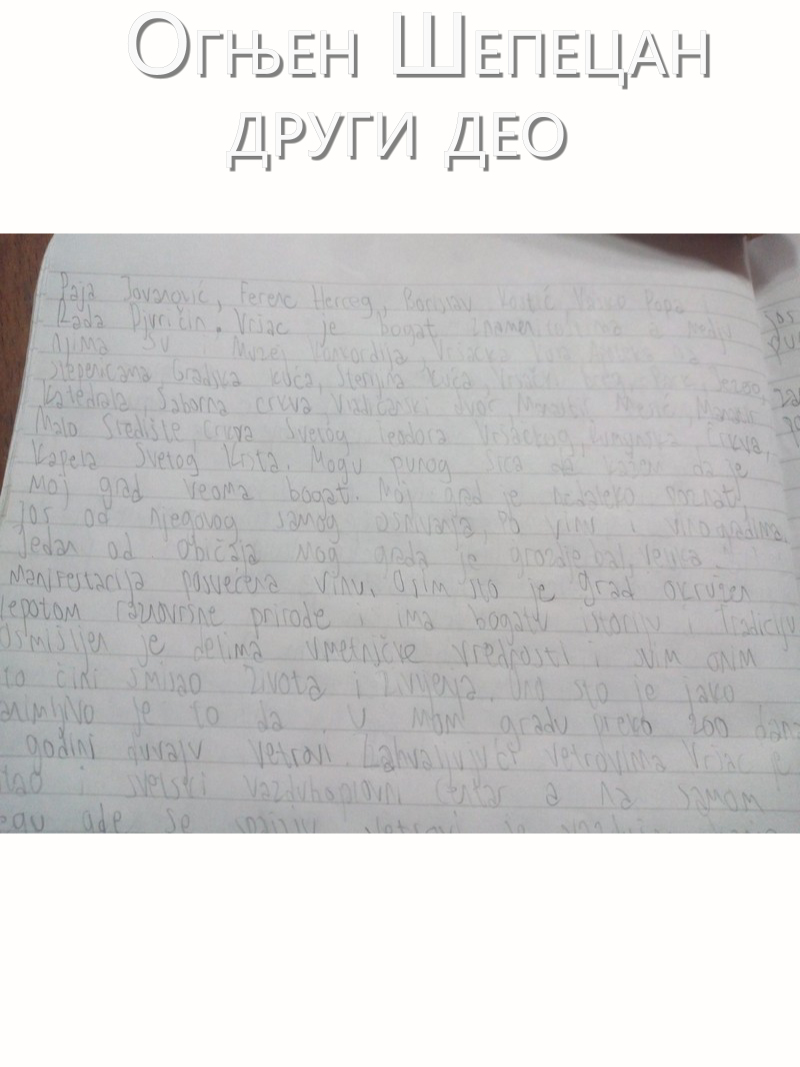 Огњен Шепецан
други део
Paja Jovanović, Ferenc Herceg, Borislav Kostić, Vasko Popa
Rada Djuričin. Vršac je bogat znamenitostima a medju
njima su Muzej Konkordija, Vršačka kula Apoteka na
stepenicama Gradska kuća, Sterijina kuća, Vršački breg, Park, Jezero,
Katedrala, Saborna crkva Vladičanski dvor Manastir Mesić, Manastir
Malo Središte Crkva Svetog Teodora Vršačkog, Rumunska Crkva,
Kapela Svetog Krsta. Mogu punog srca da kažem da je
moj grad veoma bogat. Moj grad je nadaleko poznat,
još od njegovog samog osnivanja, po vinu i vinogradima.
Jedan od običaja mog grada je grozdje bal, velika
manifestacija posvećena vinu. Osim što je grad okružen
lepotom raznovrsne prirode i ima bogatu istoriju i Tradiciju
osmišljen je delima umetničke vrednosti i svim onim
to čini smisao života i življenja. Ono što je jako
animljivo je to da u mom gradu preko 200 dana
godini duvaju vetrovi. Zahvaljujući vetrovima Vršac je
tao i svetski vazduhoplovni centar a na samom
egu gde se vetrovi